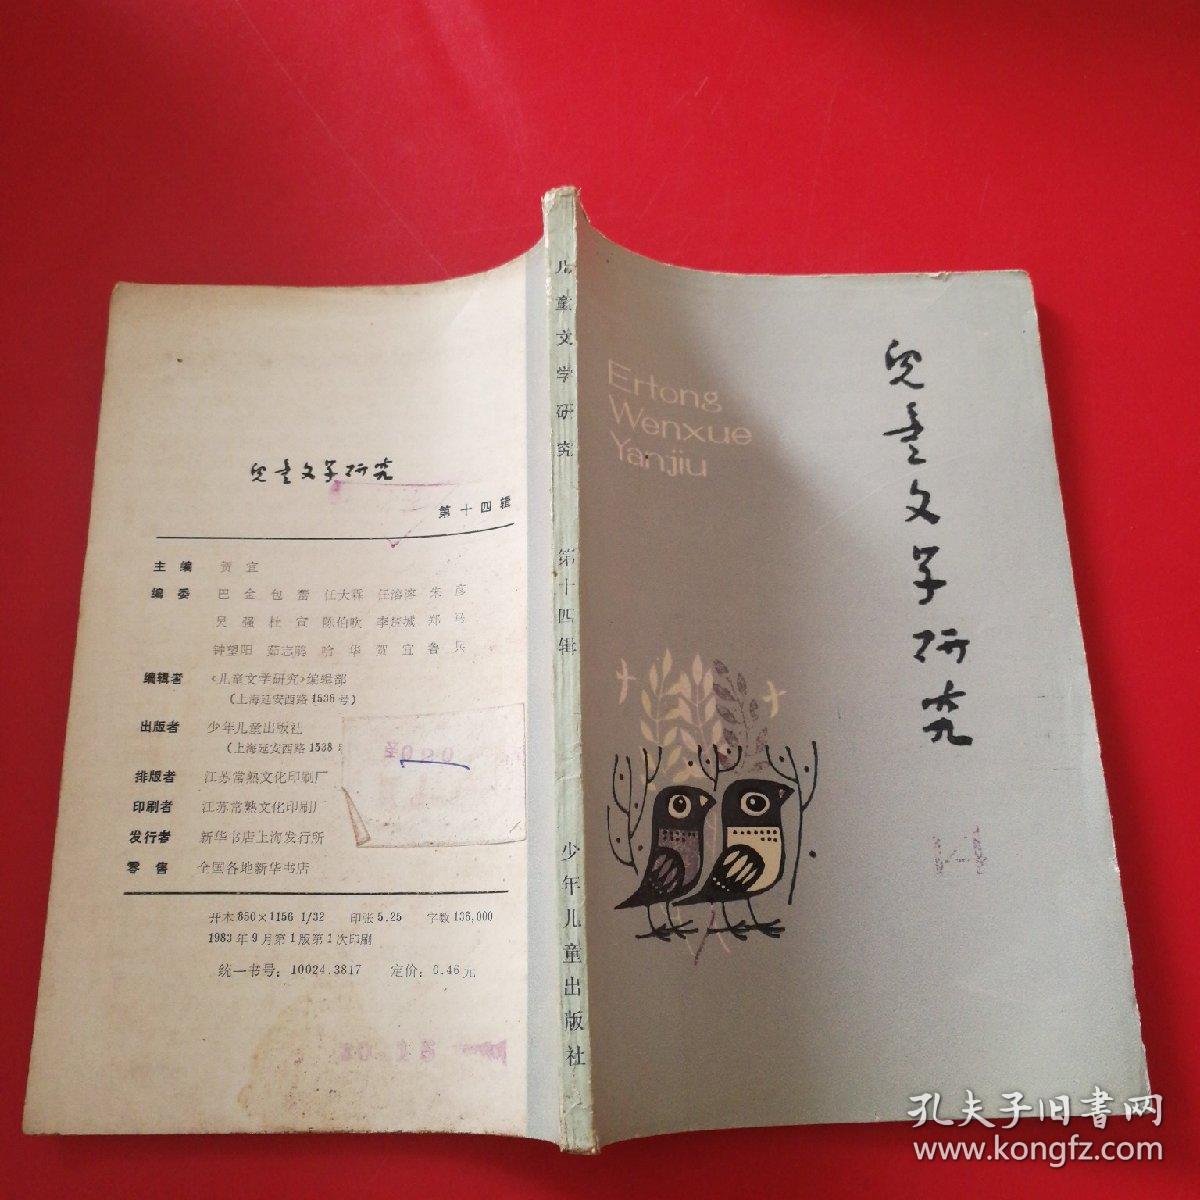 兒童文学研究
第十四辑
主编 贺宜
编委 巴金 包蕾 任大霖 任溶溶 朱彦
吴强 杜宣 陈伯吹 李楚城 郑马
钟望阳 茹志鹃 哈华 贺宜 鲁兵
编辑者 《儿童文学研究》编辑部
(上海延安西路1538号)
出版者 少年儿童出版社
(上海延安西路1538
排版者 江苏常熟文化印刷厂
印刷者 江苏常熟文化印刷厂
发行者 新华书店上海发行所
零售 全国各地新华书店
开本850×1156 1/32 印张5.25 字数136,000
1983年9月第1版第1次印刷
统一书号:10024.3817 定价:0.46元
儿童文学研究 第十四辑 少年儿童出版社
Ertong
Wenxue
Yanjiu
兒童文学研究
14
孔夫子旧书网
www.kongfz.com